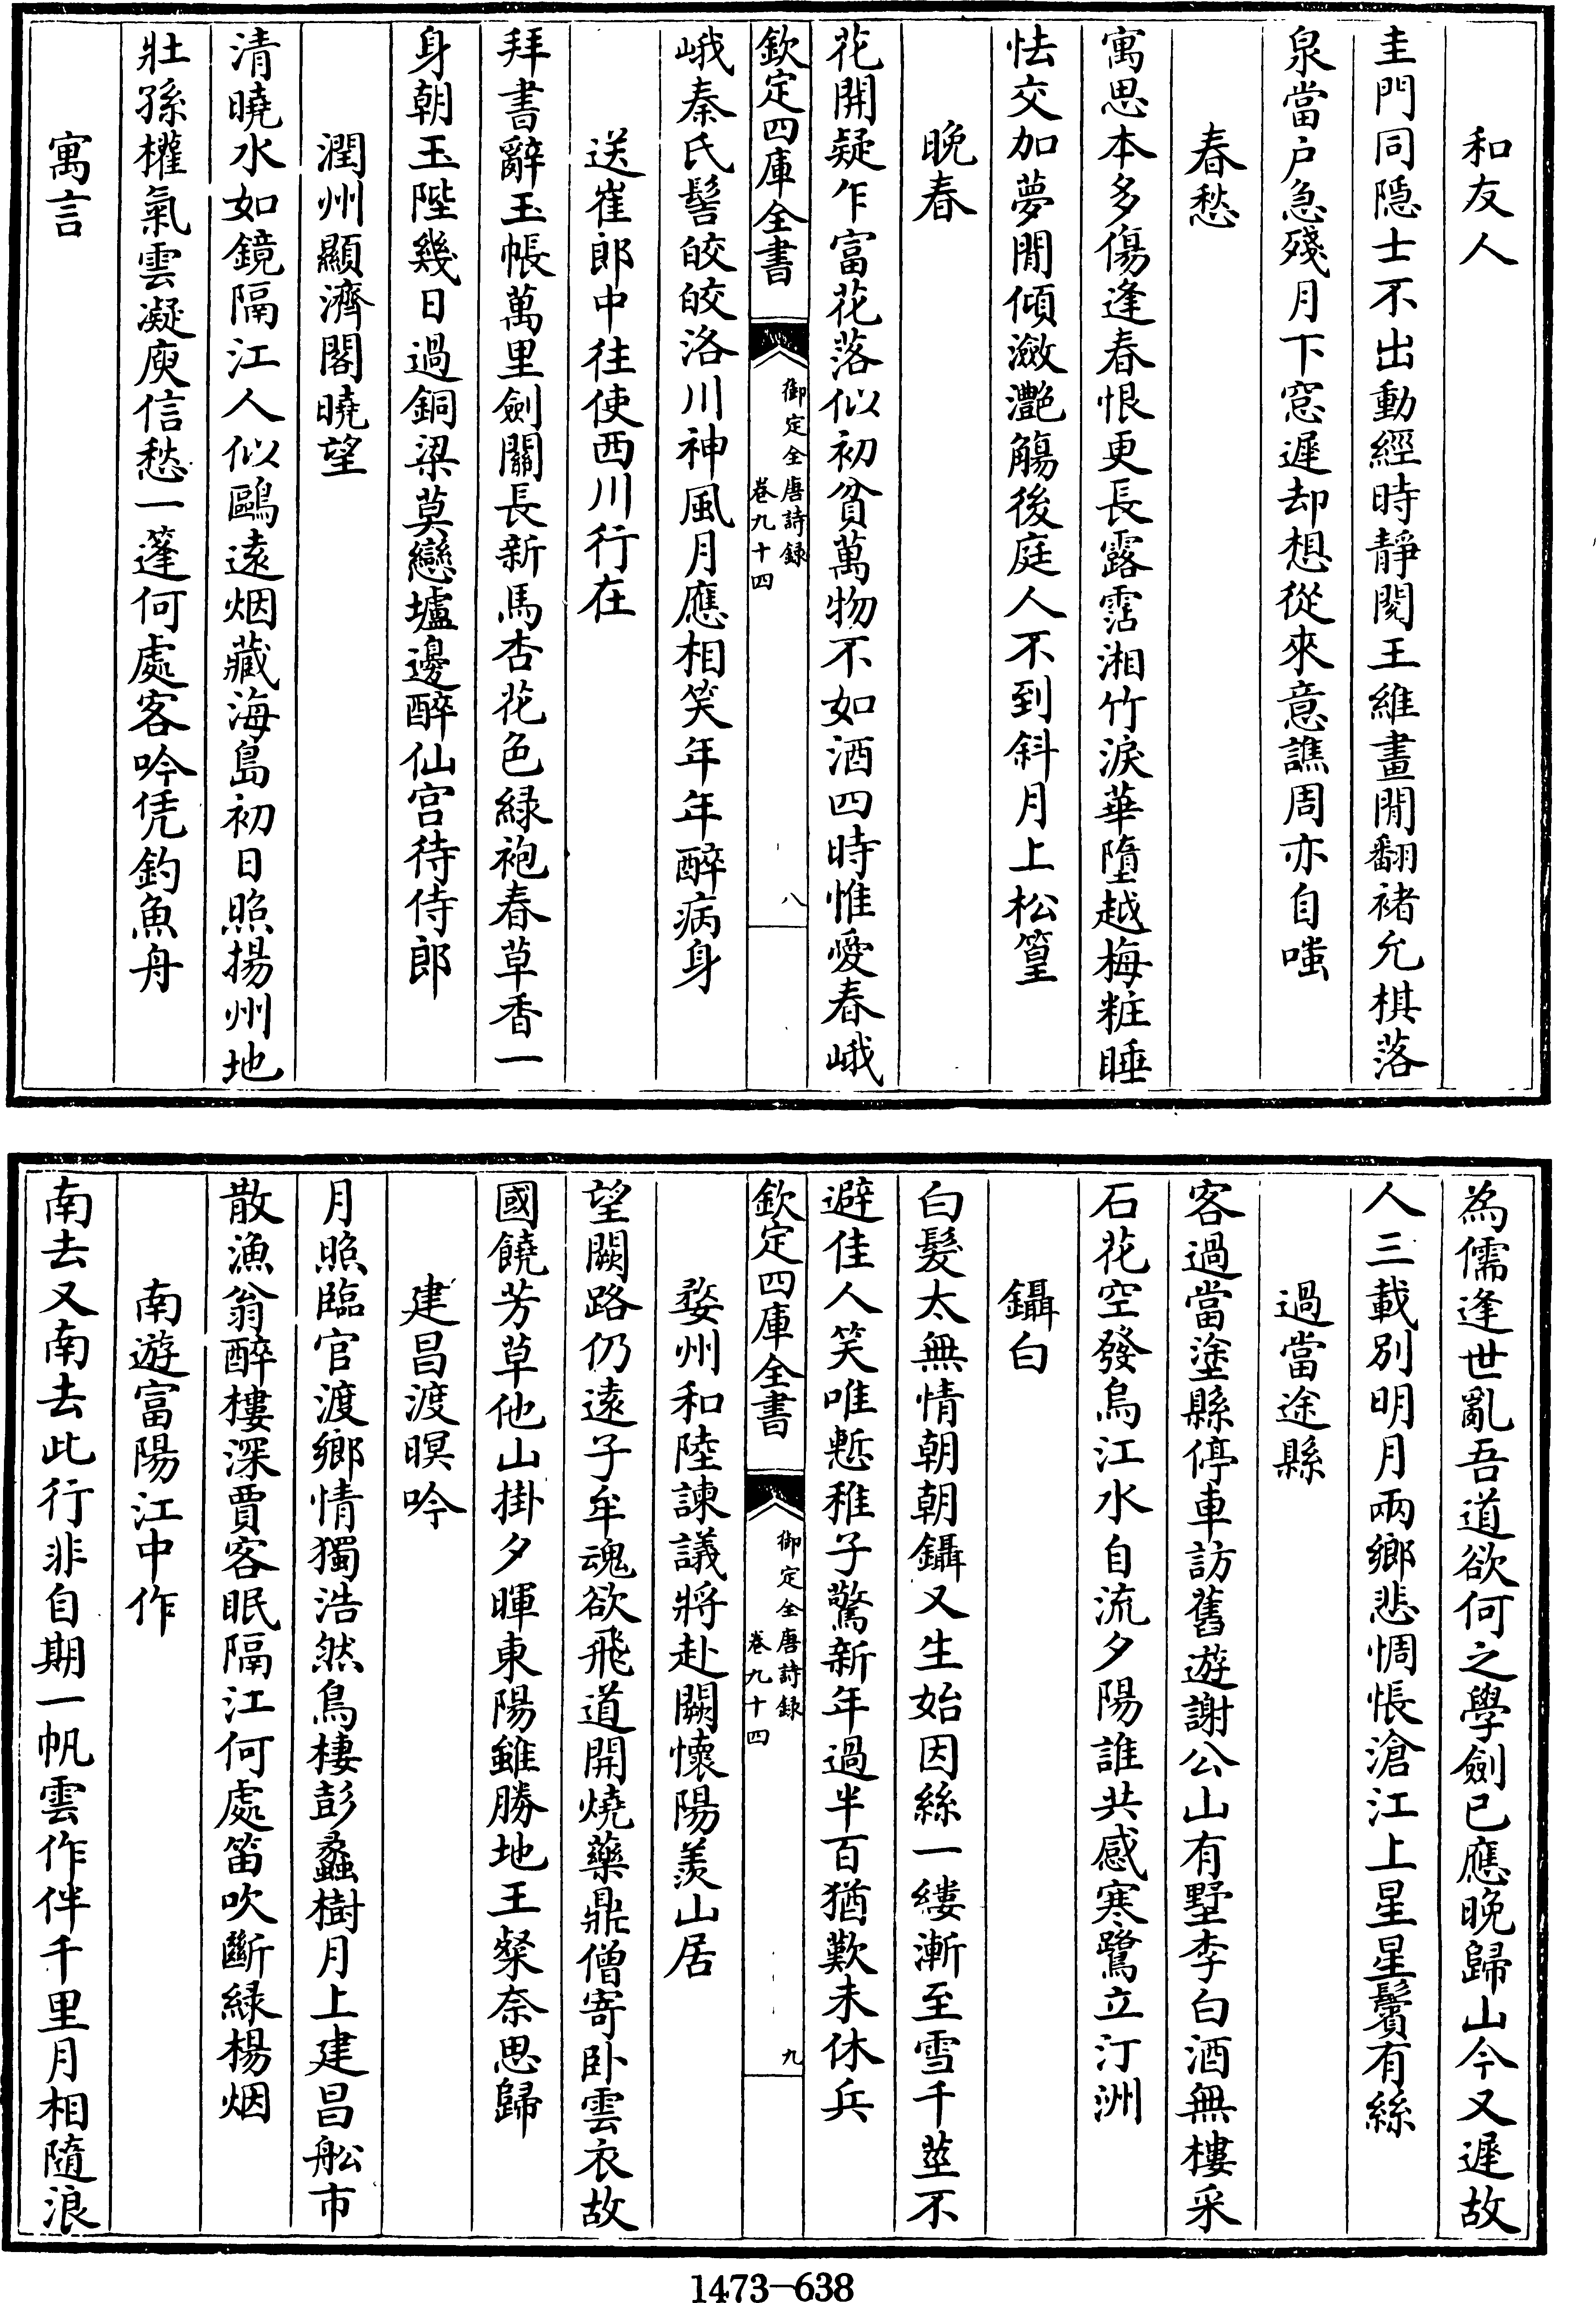 和友人
圭門同隠士不出動經時靜閱王維畫閒翻褚允棋落
泉當户急殘月下窓遲却想從來意譙周亦自嗤
春愁
寓思本多傷逢春恨更長露霑湘竹淚華墮越梅粧睡
怯交加夢閒傾瀲灔觴後庭人不到斜月上松篁
晚春
花開疑乍富花落似初貧萬物不如酒四時惟愛春峨
欽定四庫全書
御定全唐詩録
卷九十四
八
峨秦氏髻皎皎洛川神風月應相笑年年醉病身
送崔郎中往使西川行在
拜書辭玉帳萬里劍關長新馬杏花色緑袍春草香一
身朝玉陛幾日過銅梁莫戀壚邊醉仙宫待侍郎
潤州顯濟閣曉望
清曉水如鏡隔江人似鷗逺烟藏海島初日照揚州地
壯孫權氣雲凝庾信愁一篷何處客吟凭釣魚舟
寓言
為儒逢世亂吾道欲何之學劍已應晚歸山今又遲故
人三載別明月兩鄉悲惆悵滄江上星星鬢有絲
過當途縣
客過當塗縣停車訪舊遊謝公山有墅李白酒無樓采
石花空發烏江水自流夕陽誰共感寒鷺立汀洲
鑷白
白髮太無情朝朝鑷又生始因絲一縷漸至雪千莖不
避佳人笑唯慙稚子驚新年過半百猶歎未休兵
欽定四庫全書
御定全唐詩録
卷九十四
九
婺州和陸諫議將赴闕懷陽羨山居
望闕路仍逺子牟魂欲飛道開燒藥鼎僧寄卧雲衣故
國饒芳草他山掛夕暉東陽雖勝地王粲奈思歸
建昌渡暝吟
月照臨官渡鄉情獨浩然鳥棲彭蠡樹月上建昌舩市
散漁翁醉樓深賈客眠隔江何處笛吹斷緑楊烟
南遊富陽江中作
南去又南去此行非自期一帆雲作伴千里月相隨浪
1473-638